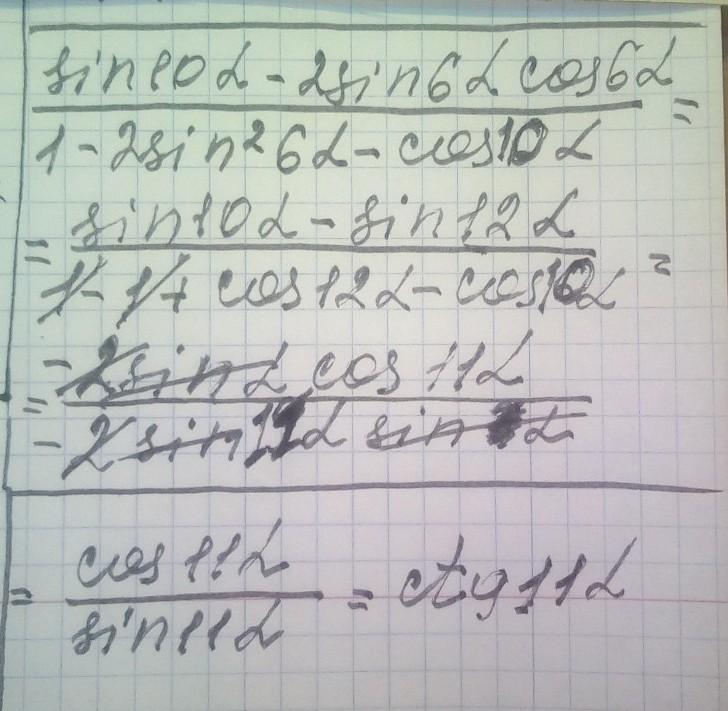 sin10α - 2sin6α cos6α
=
1 - 2sin²6α - cos10α
= sin10α - sin12α
=
1 - 1 + cos12α - cos10α
= -2sinα cos 11α
-2sin11α sin α
= cos 11α
sin11α
= ctg11α